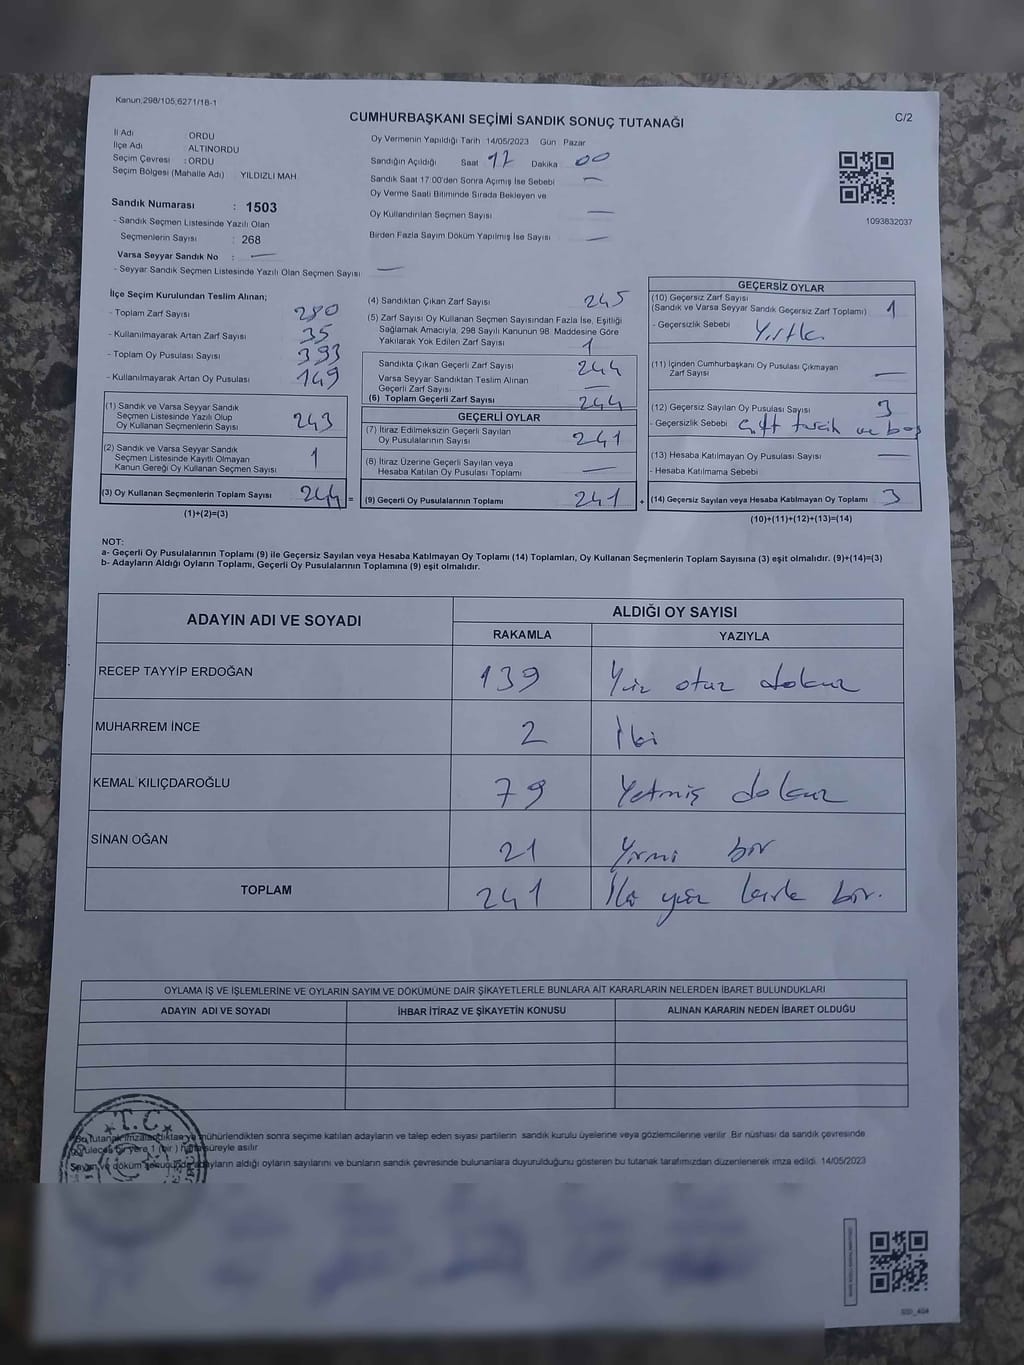 Kanun,298/105,6271/18-1
CUMHURBAŞKANI SEÇİMİ SANDIK SONUÇ TUTANAĞI
C/2
İl Adı ORDU
İlçe Adı : ALTINORDU
Seçim Çevresi : ORDU
Seçim Bölgesi (Mahalle Adı) YILDIZLI MAH.
Oy Vermenin Yapıldığı Tarih 14/05/2023 Gün Pazar
Sandığın Açıldığı Saat 17 Dakika 00
Sandık Saat 17:00'den Sonra Açımış İse Sebebi —
Oy Verme Saati Bitiminde Sırada Bekleyen ve
Oy Kullandırılan Seçmen Sayısı —
Birden Fazla Sayım Döküm Yapılmış İse Sayısı —
1093832037
Sandık Numarası : 1503
- Sandık Seçmen Listesinde Yazılı Olan
Seçmenlerin Sayısı : 268
Varsa Seyyar Sandık No : —
- Seyyar Sandık Seçmen Listesinde Yazılı Olan Seçmen Sayısı —
İlçe Seçim Kurulundan Teslim Alınan;
- Toplam Zarf Sayısı 280
- Kullanılmayarak Artan Zarf Sayısı 35
- Toplam Oy Pusulası Sayısı 393
- Kullanılmayarak Artan Oy Pusulası 149
(1) Sandık ve Varsa Seyyar Sandık
Seçmen Listesinde Yazılı Olup
Oy Kullanan Seçmenlerin Sayısı 243
(2) Sandık ve Varsa Seyyar Sandık
Seçmen Listesinde Kayıtlı Olmayan
Kanun Gereği Oy Kullanan Seçmen Sayısı 1
(3) Oy Kullanan Seçmenlerin Toplam Sayısı 244 =
(1)+(2)=(3)
(4) Sandıktan Çıkan Zarf Sayısı 245
(5) Zarf Sayısı Oy Kullanan Seçmen Sayısından Fazla İse, Eşitliği
Sağlamak Amacıyla, 298 Sayılı Kanunun 98. Maddesine Göre
Yakılarak Yok Edilen Zarf Sayısı 1
Sandıkta Çıkan Geçerli Zarf Sayısı 244
Varsa Seyyar Sandıktan Teslim Alınan
Geçerli Zarf Sayısı —
(6) Toplam Geçerli Zarf Sayısı 244
GEÇERLİ OYLAR
(7) İtiraz Edilmeksizin Geçerli Sayılan
Oy Pusulalarının Sayısı 241
(8) İtiraz Üzerine Geçerli Sayılan veya
Hesaba Katılan Oy Pusulası Toplamı —
(9) Geçerli Oy Pusulalarının Toplamı 241 +
GEÇERSİZ OYLAR
(10) Geçersiz Zarf Sayısı
(Sandık ve Varsa Seyyar Sandık Geçersiz Zarf Toplamı) 1
- Geçersizlik Sebebi Yırtık
(11) İçinden Cumhurbaşkanı Oy Pusulası Çıkmayan
Zarf Sayısı —
(12) Geçersiz Sayılan Oy Pusulası Sayısı 3
- Geçersizlik Sebebi Çift tercih ve boş
(13) Hesaba Katılmayan Oy Pusulası Sayısı —
- Hesaba Katılmama Sebebi
(14) Geçersiz Sayılan veya Hesaba Katılmayan Oy Toplamı 3
(10)+(11)+(12)+(13)=(14)
NOT:
a- Geçerli Oy Pusulalarının Toplamı (9) ile Geçersiz Sayılan veya Hesaba Katılmayan Oy Toplamı (14) Toplamları, Oy Kullanan Seçmenlerin Toplam Sayısına (3) eşit olmalıdır. (9)+(14)=(3)
b- Adayların Aldığı Oyların Toplamı, Geçerli Oy Pusulalarının Toplamına (9) eşit olmalıdır.
ADAYIN ADI VE SOYADI ALDIĞI OY SAYISI
RAKAMLA YAZIYLA
RECEP TAYYİP ERDOĞAN 139 Yüz otuz dokuz
MUHARREM İNCE 2 İki
KEMAL KILIÇDAROĞLU 79 Yetmiş dokuz
SİNAN OĞAN 21 Yirmi bir
TOPLAM 241 İki yüz kırk bir.
OYLAMA İŞ VE İŞLEMLERİNE VE OYLARIN SAYIM VE DÖKÜMÜNE DAİR ŞİKAYETLERLE BUNLARA AİT KARARLARIN NELERDEN İBARET BULUNDUKLARI
ADAYIN ADI VE SOYADI İHBAR İTİRAZ VE ŞİKAYETİN KONUSU ALINAN KARARIN NEDEN İBARET OLDUĞU
T.C.
Bu tutanak imzalandıktan ve mühürlendikten sonra seçime katılan adayların ve talep eden siyasi partilerin sandık kurulu üyelerine veya gözlemcilerine verilir. Bir nüshası da sandık çevresinde
görülecek bir yere 1 (bir) hafta süreyle asılır
Sayım ve döküm sonucunda adayların aldığı oyların sayılarını ve bunların sandık çevresinde bulunanlara duyurulduğunu gösteren bu tutanak tarafımızdan düzenlenerek imza edildi. 14/05/2023